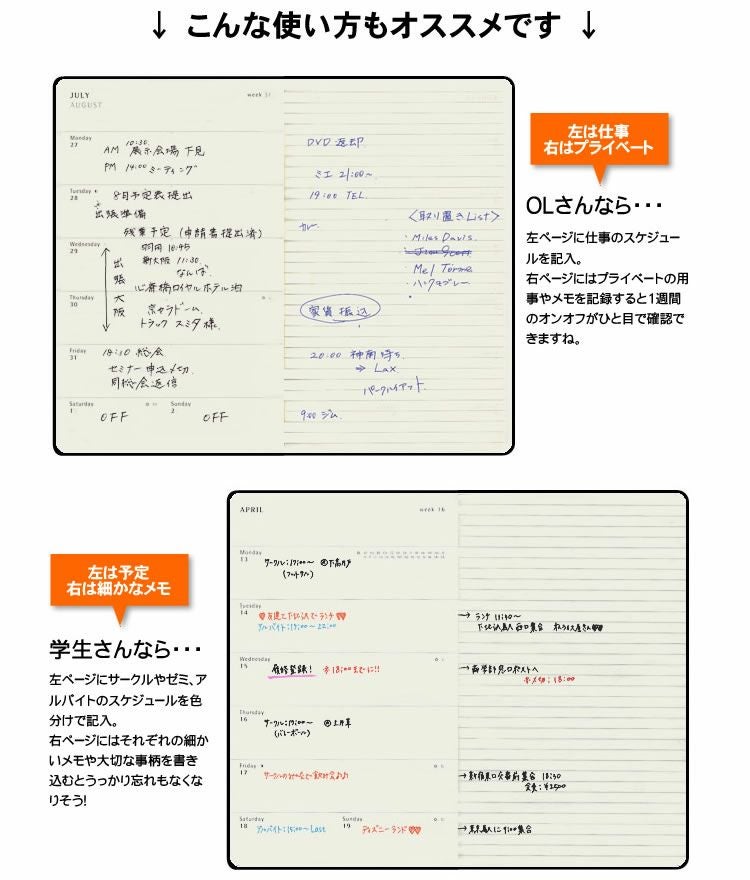 ↓ こんな使い方もオススメです ↓
JULY
AUGUST
week 31
Monday
27
10:30
AM 展示会場 下見
PM 14:00 ミーティング
Tuesday
28
8月予定表提出
出張準備
残業予定 (申請書提出済)
Wednesday
29
羽田 10:45
新大阪 11:30
なんば
心斎橋ロイヤルホテル泊
出張大阪
Thursday
30
京セラドーム
トラック スミタ様
Friday
31
18:30 総会
セミナー申込〆切
同総会返信
Saturday
1
OFF
Sunday
2
OFF
DVD 返却
ミエ 21:00~
19:00 TEL
〈取り置きList〉
・Miles Davis
・Mel Torme
家賃振込
20:00 神南待ち
⇒ Lax
パークハイアット
9:00 ジム
左は仕事
右はプライベート
OLさんなら・・・
左ページに仕事のスケジュー
ルを記入。
右ページにはプライベートの用
事やメモを記録すると1週間
のオンオフがひと目で確認で
きますね。
左は予定
右は細かなメモ
学生さんなら・・・
左ページにサークルやゼミ、ア
ルバイトのスケジュールを色
分けで記入。
右ページにはそれぞれの細か
いメモや大切な事柄を書き
込むとうっかり忘れもなくな
りそう!
APRIL
week 16
Monday
13
サークル:17:00~ @下高井戸
(フットサル)
Tuesday
14
友達と下北沢でランチ
アルバイト:17:00~22:00
Wednesday
15
履修登録! ※18:00までに!!
Thursday
16
サークル:17:00~
(バレーボール)
Friday
17
Saturday
18
アルバイト:15:00~Last
Sunday
19
ディズニーランド
→ ランチ 11:30~
下北沢駅 西口集合
〆切:18:00
集合 18:30
会費:¥2500
→ 東京駅に 9:00集合